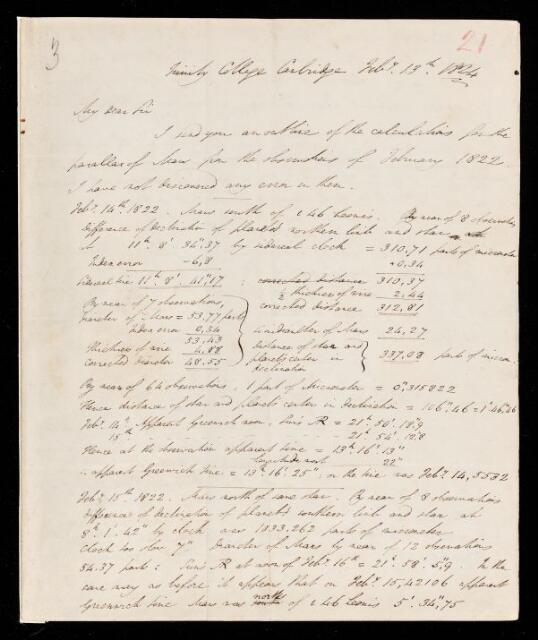 3
21
Trinity College Cambridge Feby. 13th. 1824
My dear Sir
I send you an outline of the calculations for the
parallax of Mars from the observations of February 1822.
I have not discovered any error in them.
Feby. 14th. 1822. Mars south of 46 Leonis. By mean of 8 observations
difference of declination of planet's northern limb and star
at 11h. 8'. 34",37 by sidereal clock = 310,71 parts of micrometer
Index error -6,8 +0,34
Sidereal time 11h. 8'. 41",17 : corrected distance 310,37
By mean of 7 observations, ½ thickness of wire 2,44
corrected distance 312,81
diameter of Mars = 53,77 parts
Index error 0,34 semidiameter of Mars 24,27
53,43
thickness of wire 4,88 distance of star and
corrected diameter 48,55 planet's center in declination 337,08 parts of microm.
By mean of 64 observations, 1 part of Micrometer = 0",315822
Hence distance of star and planet's center in declination = 106",46 = 1'.46",46
Feby. 14th. Apparent Greenwich noon, Sun's AR = 21h. 50'.
15th - - - - - 21h. 54'.
Hence at the observation apparent time = 13h. 16'. 13"
longitude 22"
∴ apparent Greenwich time = 13h. 16'. 25" or the time was Feby. 14,5532
Feby. 15th. 1822. Mars north of same star. By mean of 8 observations
difference of declination of planet's southern limb and star at
8h. 1'. 42" by clock was 1033.262 parts of micrometer
Clock too slow 7". Diameter of Mars by mean of 12 observations
54.37 parts: Sun's AR at noon of Feby. 16th = 21h. 58'. 5",9. In the
same way as before it appears that on Feby. 15,42106 apparent
Greenwich time Mars was north of 46 Leonis 5'. 34",75